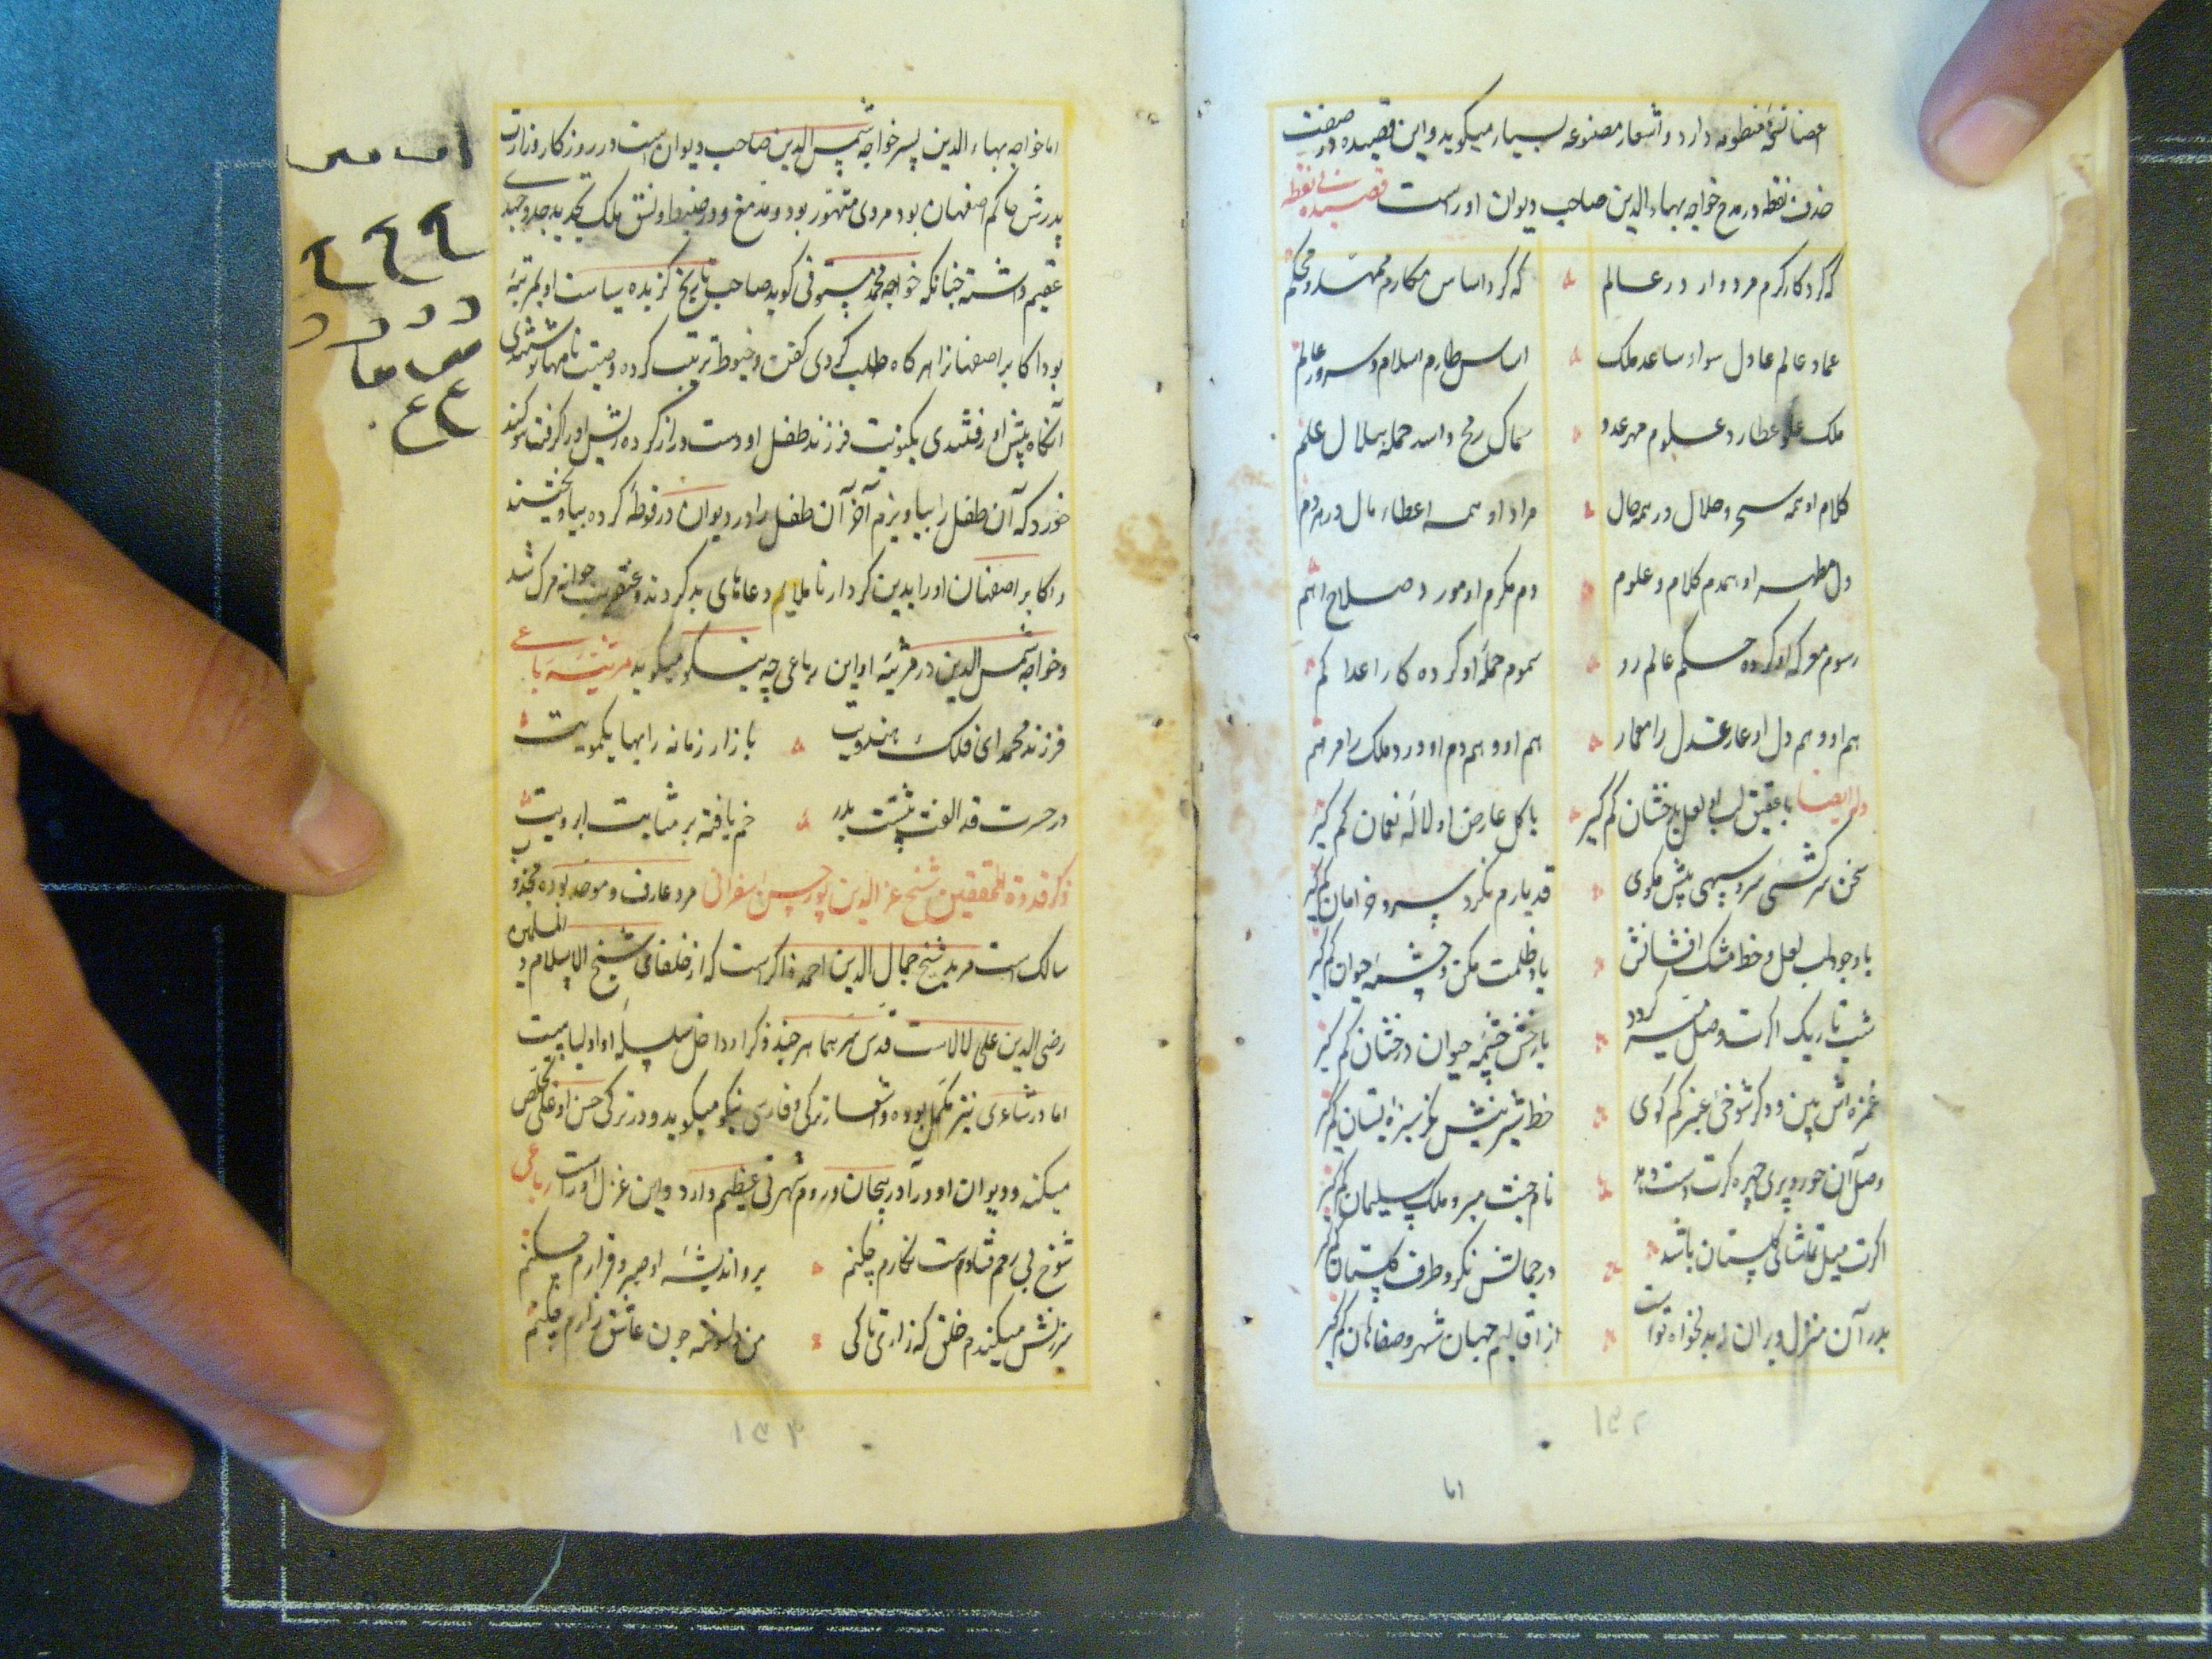 اصناف نسخه منظومه دارد و اشعار مصنوعه بسیار میکوید و این قصیده در صفت
حذف نقطه در مدح خواجه بهاء الدین صاحب دیوان او راست قصیده بی نقطه
که کرد کار کرم مردوار در عالم که کرد اساس مکارم ممهد و محکم
عماد عالم عادل سوار ساعد ملک اساس طارم اسلام و سرور عالم
ملک علو عطارد علوم مهر عدو سماک رمح و اسد حمله هلال علم
کلام او همه سحر و حلال در همه حال مراد او همه اعطاء مال در هر دم
دل مطهر او همدم کلام و علوم دم مکرم او مورد صلاح امم
رسوم معرکه او کرده حکم عالم رد سموم حمله او کرده کار اعدا کم
هم او و هم دل او عار عدل را معمار هم او و هم دم او درد ملک را مرهم
وله ایضا با عقیق لب او لعل بدخشان کم گیر با کل عارض او لاله نعمان کم گیر
سخن سرکشی سرو سهی پیش مکوی قد یارم نکر و سرو خرامان کم گیر
با وجود لب لعل و خط مشک افشانش یاد ظلمت مکن و چشمه حیوان کم گیر
شب تاریک اکرت وصل میسر کردد با رخش چشمه حیوان درخشان کم گیر
غمزه اش بین و دکر شوخی عبهر کم کوی خط شیرینش نکر سبزه بستان کم گیر
وصل آن حور و پری چهره کرت دست دهد نام جنت مبر و ملک سلیمان کم گیر
اکرت میل تماشای کلستان باشد در جمالش نکر و طرف کلستان کم گیر
بدر آن منزل ویران که بدلخواه تو است از اقالیم جهان شهر صفاهان کم گیر
۱۵۲
اما
اما خواجه بهاء الدین پسر خواجه شمس الدین صاحب دیوان است در روزکار وزارت
پدرش حاکم اصفهان بود مردی متهور بود و در ضبط و نسق ملک جد و جهدی
عظیم داشته چنانکه خواجه محمد مستوفی کوید صاحب تاریخ کزیده سیاست او بمرتبه
بود اکابر اصفهانرا هر کاه طلب کردی کفن و حنوط ترتیب کرده وصیت نامها نوشتندی
آنکاه پیش او رفتندی یکنوبت فرزند طفل او دست دراز کرده ریش او را کرفت سوکند
خورد که آن طفل را بیاویزم آخر آن طفل را در دیوان در فوطه کرده بیاویختند
و اکابر اصفهان او را بدین کردار ناملایم دعاهای بد کردند و عنقریب جوانه مرک شد
و خواجه شمس الدین در مرثیه او این رباعی چه نیکو میکوید مرثیه رباعی
فرزند محمد ای فلک هندویت بازار زمانه را بها یکمویت
در حسرت قد الفت پشت پدر خم یافته بر مثابت ابرویت
ذکر قدوة المحققین شیخ عز الدین پور حسن اسفراینی مرد عارف و موحد بوده مجذوب
سالک است مرید شیخ جمال الدین احمد ذاکر است که از خلفای شیخ الاسلام و المسلمین
رضی الدین علی لالاست قدس سرهما هر چند ذکر او داخل سلسله اولیا است
اما در شاعری نیز مکمل بوده و اشعار ترکی و فارسی نیکو میکوید و در ترکی حسن اوغلی تخلص
میکند و دیوان او در آذربیجان و روم شهرتی عظیم دارد و این غزل او راست رباعی
شوخ بی رحم فتاده است نکارم چکنم برد اندیشه او صبر و قرارم چکنم
سرزنش میکندم خلق که زاری تا کی من دلسوخته چون عاشق زارم چکنم
۱۵۳